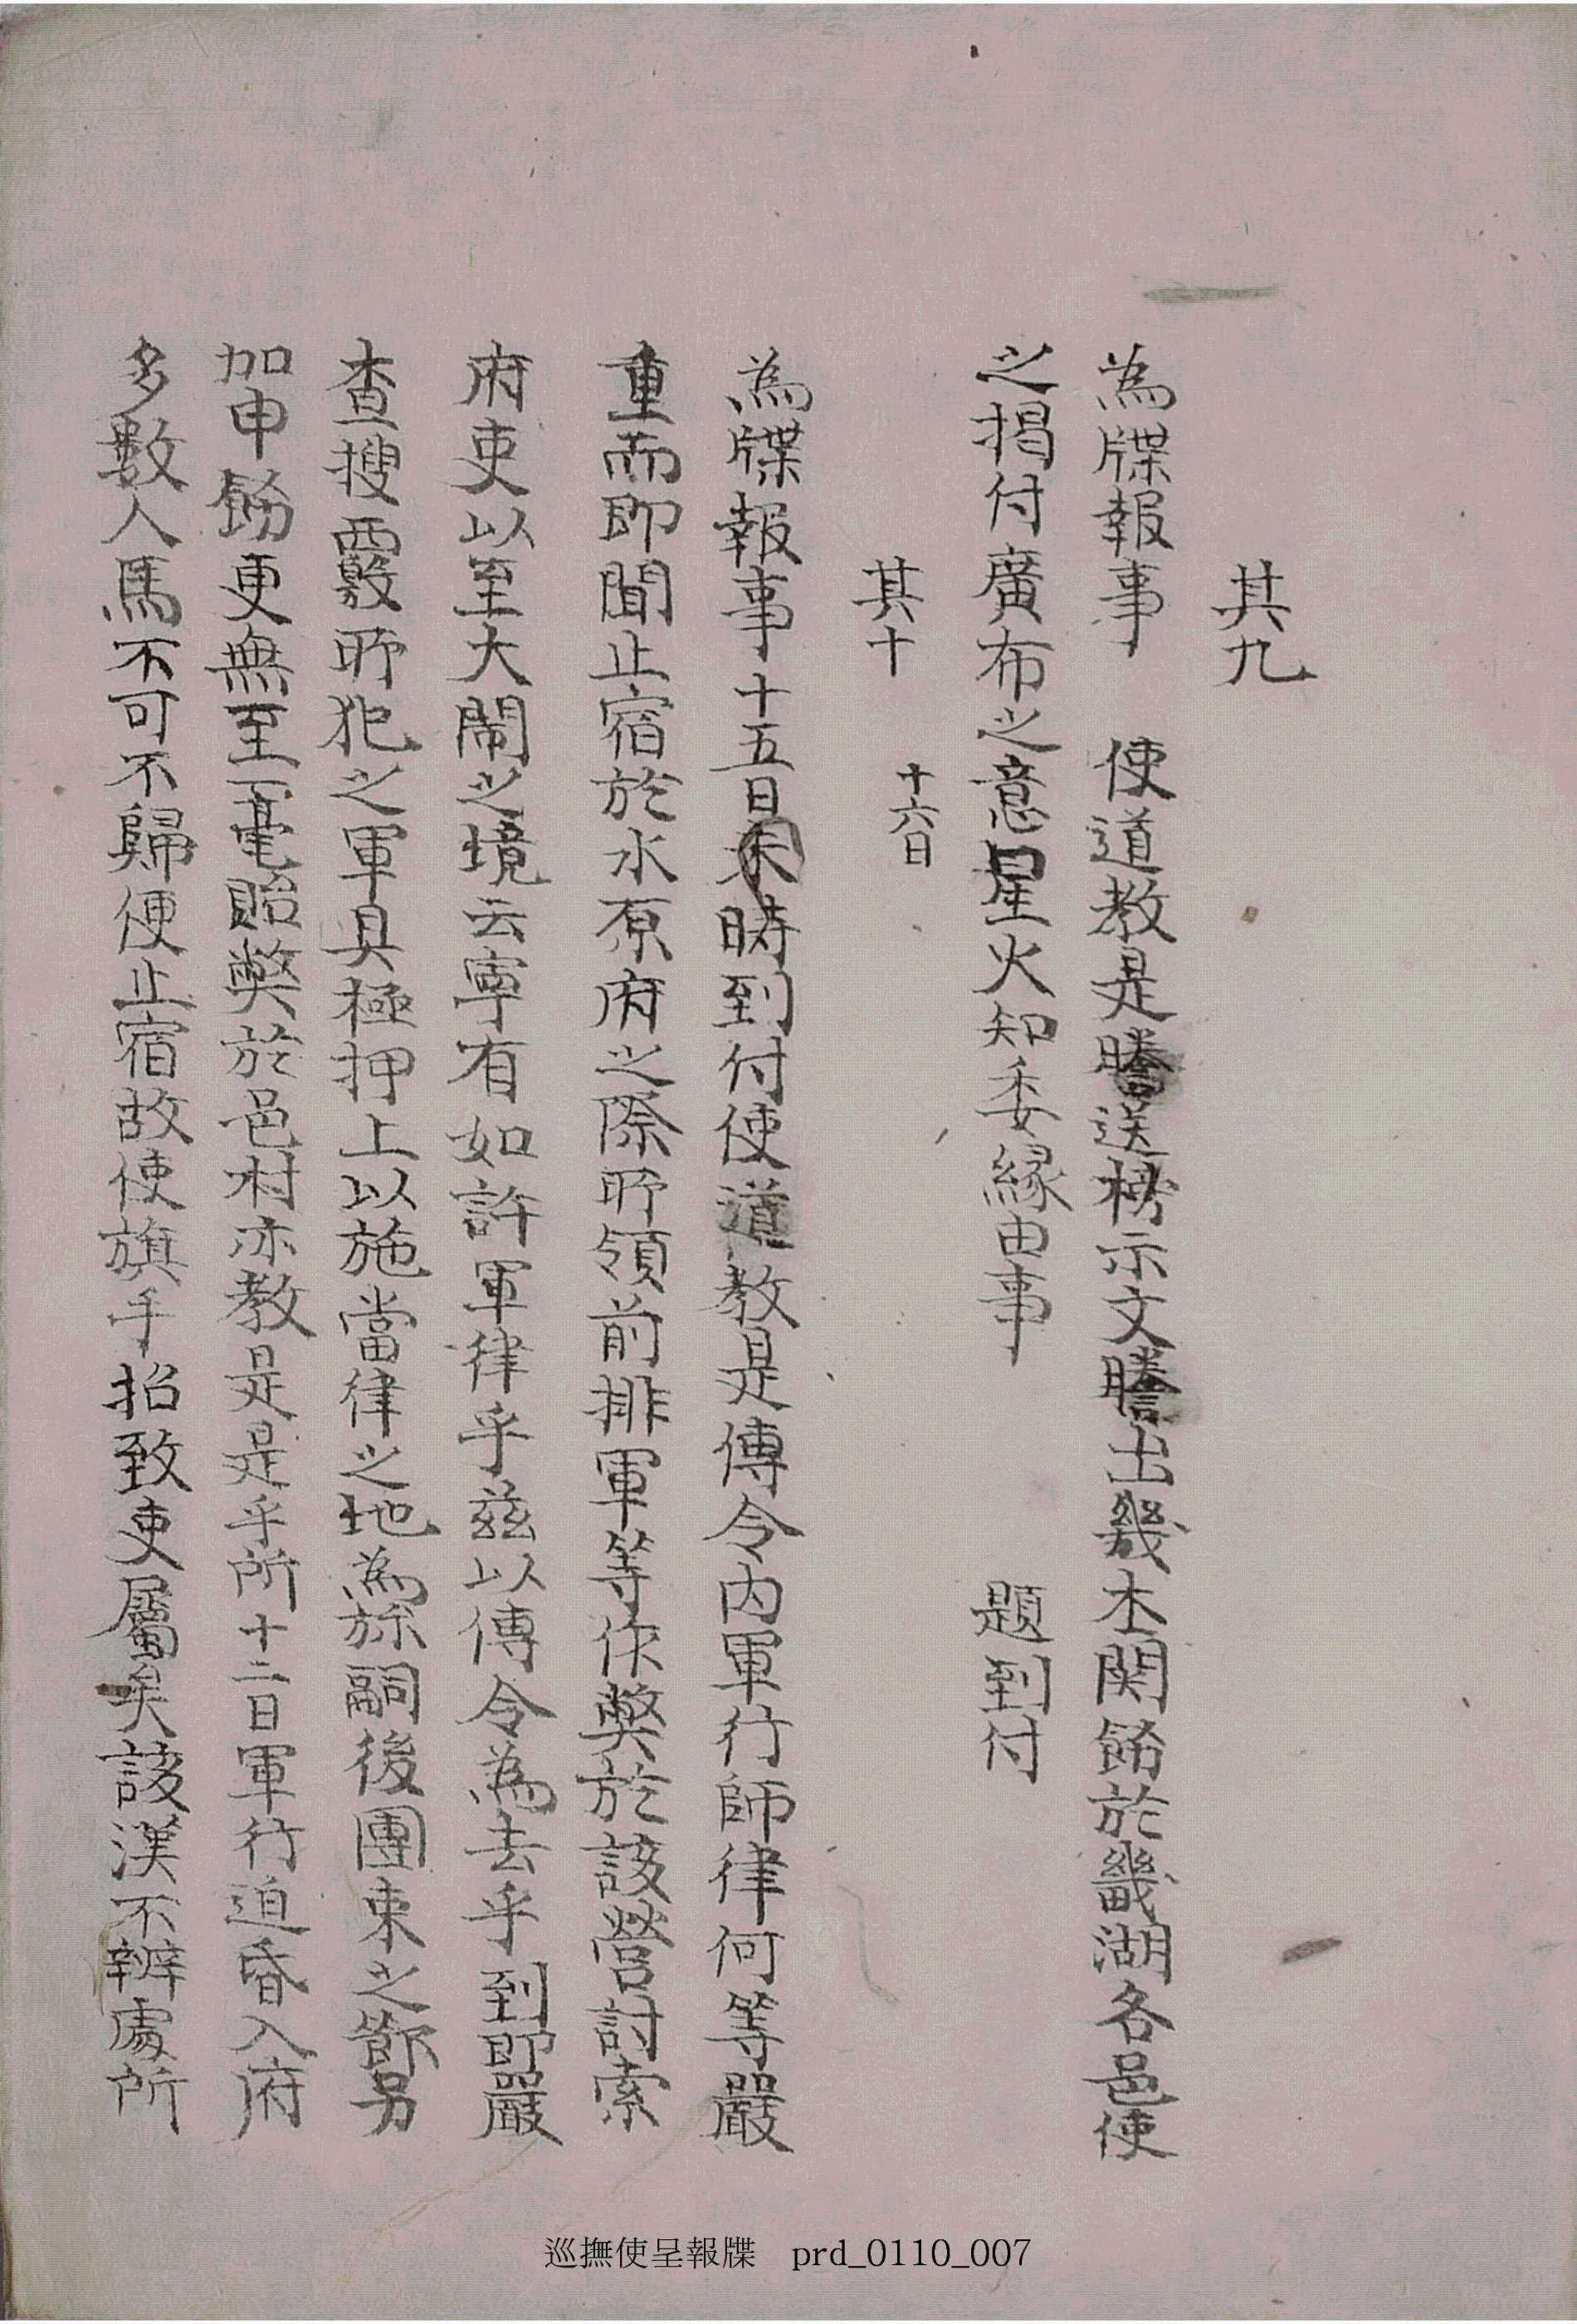 其九
為牒報事 使道教是謄送榜示文謄出幾本関飭於畿湖各邑使
之揭付廣布之意星火知委縁由事 題到付
其十 十六日
為牒報事十五日未時到付使道教是傳令内軍行師律何等嚴
重而即聞止宿於水原府之際所領前排軍等作獘於該營討索
府吏以至大鬧之境云寧有如許軍律乎玆以傳令為去乎到即嚴
查搜覈所犯之軍具極押上以施當律之地為旀嗣後團束之節另
加申飭更無至一毫貽獘於邑村亦教是是乎所十二日軍行迫昏入府
多數人馬不可不歸便止宿故使旗手招致吏屬矣該漢不辨處所
巡撫使呈報牒 prd_0110_007